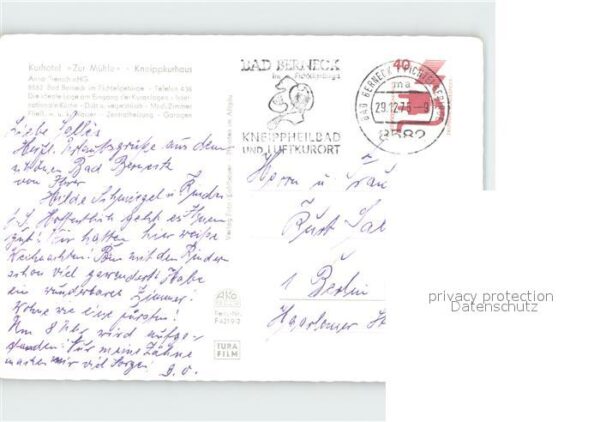 Kurhotel »Zur Mühle« - Kneippkurhaus
8582 Bad Berneck im Fichtelgebirge - Telefon 436
Die ideale Lage am Eingang der Kuranlagen - Inter-
nationale Küche - Diät u. vegetarisch - Mod. Zimmer
Fließ. w. u. k. Wasser - Zentralheizung - Garagen
BAD BERNECK
im Fichtelgebirge
KNEIPPHEILBAD
UND LUFTKURORT
BAD BERNECK I. FICHTELGEB
ma
29.12.76 - 9
8582
40
Liebe
Herzl. Urlaubsgrüße aus dem
schönen Bad Berneck
von Ihrer
Hilde u. Kinder
Hoffentlich geht es Ihnen
gut! Wir hatten hier weiße
Weihnachten! Bin mit den Kindern
schon viel gewandert! Habe
ein wunderbares Zimmer!
Wohne wie eine Fürstin!
Um 8 Uhr wird aufge-
standen! Nur meine Zähne
machen mir viel Sorgen!
Herrn u. Frau
Kurt
1 Berlin
Haarlemer St
AKO
TURA
FILM
privacy protection
Datenschutz